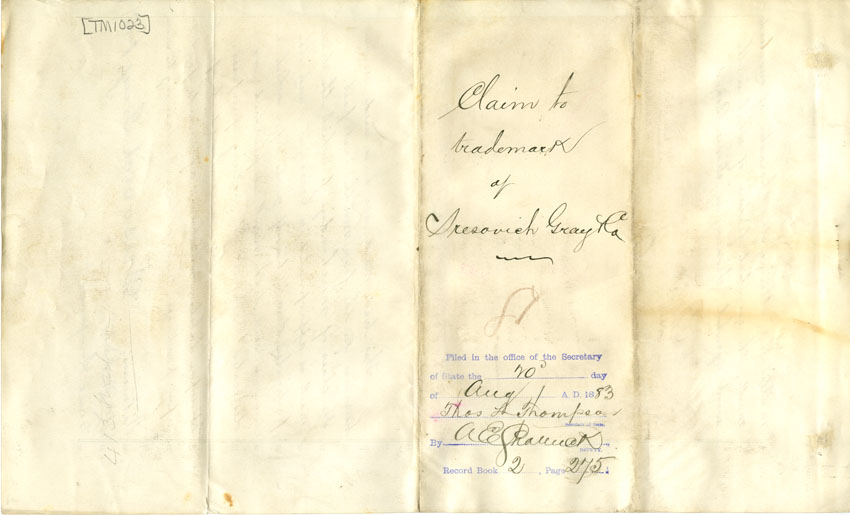 [TM1023]
Claim to
trademark
of
Sresovich Gray & Co
Filed in the office of the Secretary
of State the 20 day
of Aug A. D. 1883
Thos H Thompson
Secretary of State.
By A E
DEPUTY.
Record Book 2, Page 275.